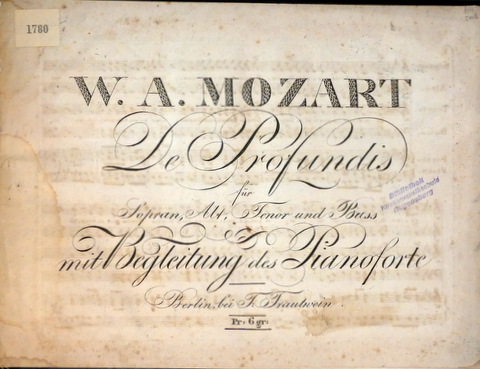 1760
W. A. MOZART
De Profundis
für
Sopran, Alt, Tenor und Bass
mit Begleitung des Pianoforte
Berlin, bei T. Trautwein.
Pr: 6 gr:
Bibliothek
Kirchenmusikschule
Regensburg